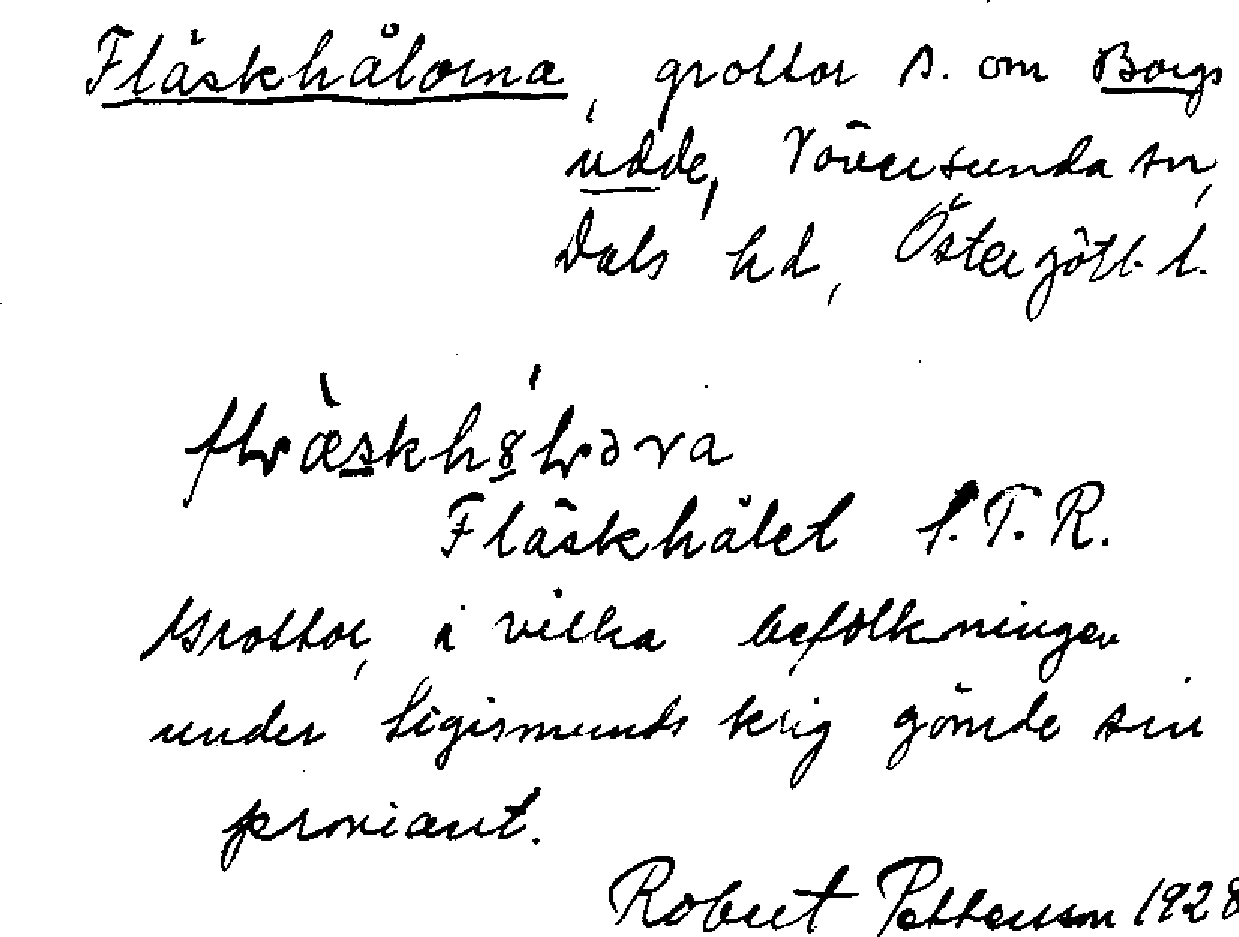 Fläskhålorna, grottor s. om Borgs
udde, Väversunda sn,
Dals hd, Östergötl. l.
Fläskhålet f.T.R.
Grottor, i vilka befolkningen
under Sigismunds krig gömde sin
proviant.
Robert Pettersson 1928